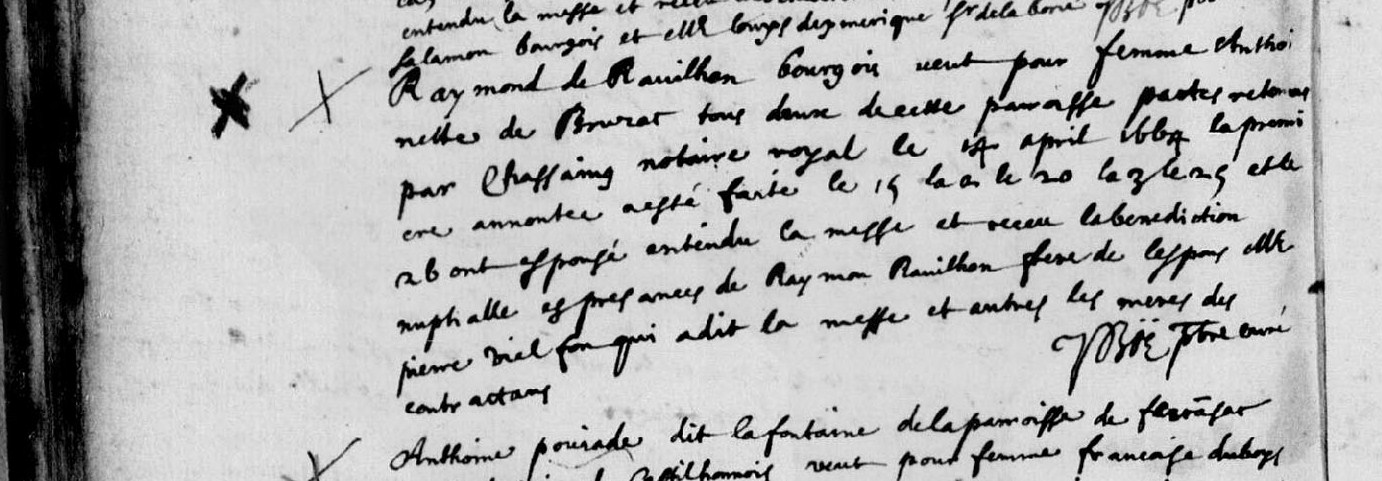 entendu la messe et receu
Salamon bourgois et Mr Louys deymerique sr de la borie
Raymond de Rauilhon bourgois veut pour femme Antho
nette de Bruzac tous deux de cette parroisse pactes retenus
par Chassaing notaire royal le 14 april 1664 la premi
ere annontee a esté faite le 15 la 2 le 20 la 3 le 25 et le
26 ont espousé entendu la messe et receu la benediction
nuptialle es presances de Raymon Rauilhon frere de lespous Mr
pierre viel qui a dit la messe et autres les meres des
contractans
ptbre curé
Anthoine pouiade dit lafontaine de la parroisse de
veut pour femme francoise duboys